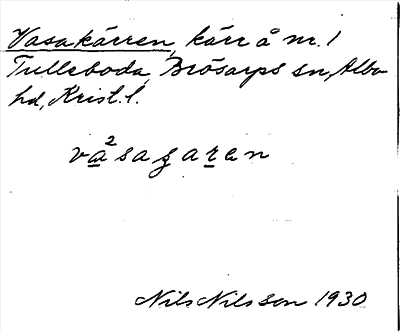 Vasakärren, kärr å nr. 1
Tulleboda, Brösarps sn, Albo
hd, Krist. l.
va²sagaren
Nils Nilsson 1930